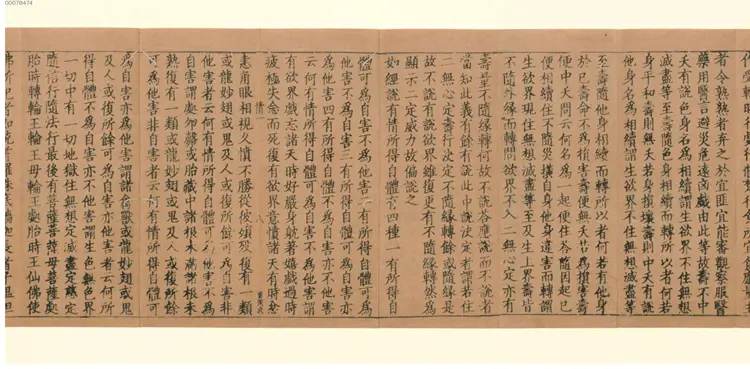 者令熟熟者弃之於宜匪宜能審觀察服醫
藥用醫言避災危遠凶戲由此等故壽不中
夭有說色身名為相續謂生欲界不住無想
滅盡等至壽隨色身相續而轉所以者何若
身平和壽則無夭若身損壞壽則中夭有說
他身名為相續謂生欲界不住無想滅盡等
至壽隨他身相續而轉所以者何若有他身
於己壽命不為損害壽便無夭若為損害壽
便中夭問云何名為一起便住答隨因起已
便相續住不隨災橫自身他身違害而轉謂
生欲界現住無想滅盡等至及生上界壽皆
不隨外緣而轉問欲界不入二無心定亦有
壽量不隨緣轉何故不說答應說而不說者
當知此義有餘有說此中說決定者謂若住
二無心定壽行決定不隨緣轉餘或隨緣是
故不說有說欲界雖復更有不隨緣轉然為
示二定威力故偏說之
如經說有情所得自體有四種一有所得自
體可為自害不為他害二有所得自體可為
他害不為自害三有所得自體可為自害亦
他害四有所得自體不為自害亦不他害
云何有情所得自體可為自害不為他害謂
有欲界戲忘諸天時好嚴身躭著嬉戲過時
疲極失念而死復有欲界意憤諸天有時忿
情二 八
恚角眼相視久憤不勝從彼殞歿復有一類
或龍妙翅或鬼及人或復所餘可為自害非
他害者云何有情所得自體可為他害不為
自害謂處卵㲉或胎藏中諸根未滿諸根未
熟復有一類或龍妙翅或鬼及人或復所餘
可為他害非自害者云何有情所得自體可
為自害亦為他害謂諸禽獸或龍妙翅或鬼
及人或復所餘可為自害亦他害者云何所
得自體不為自害亦不他害謂生色無色界
一切中有一切地獄住無想定滅盡定慈定
隨信行隨法行最後有菩薩菩薩母菩薩處
胎時轉輪王輪王母輪王處胎時王仙佛使
佛所記者
00078474